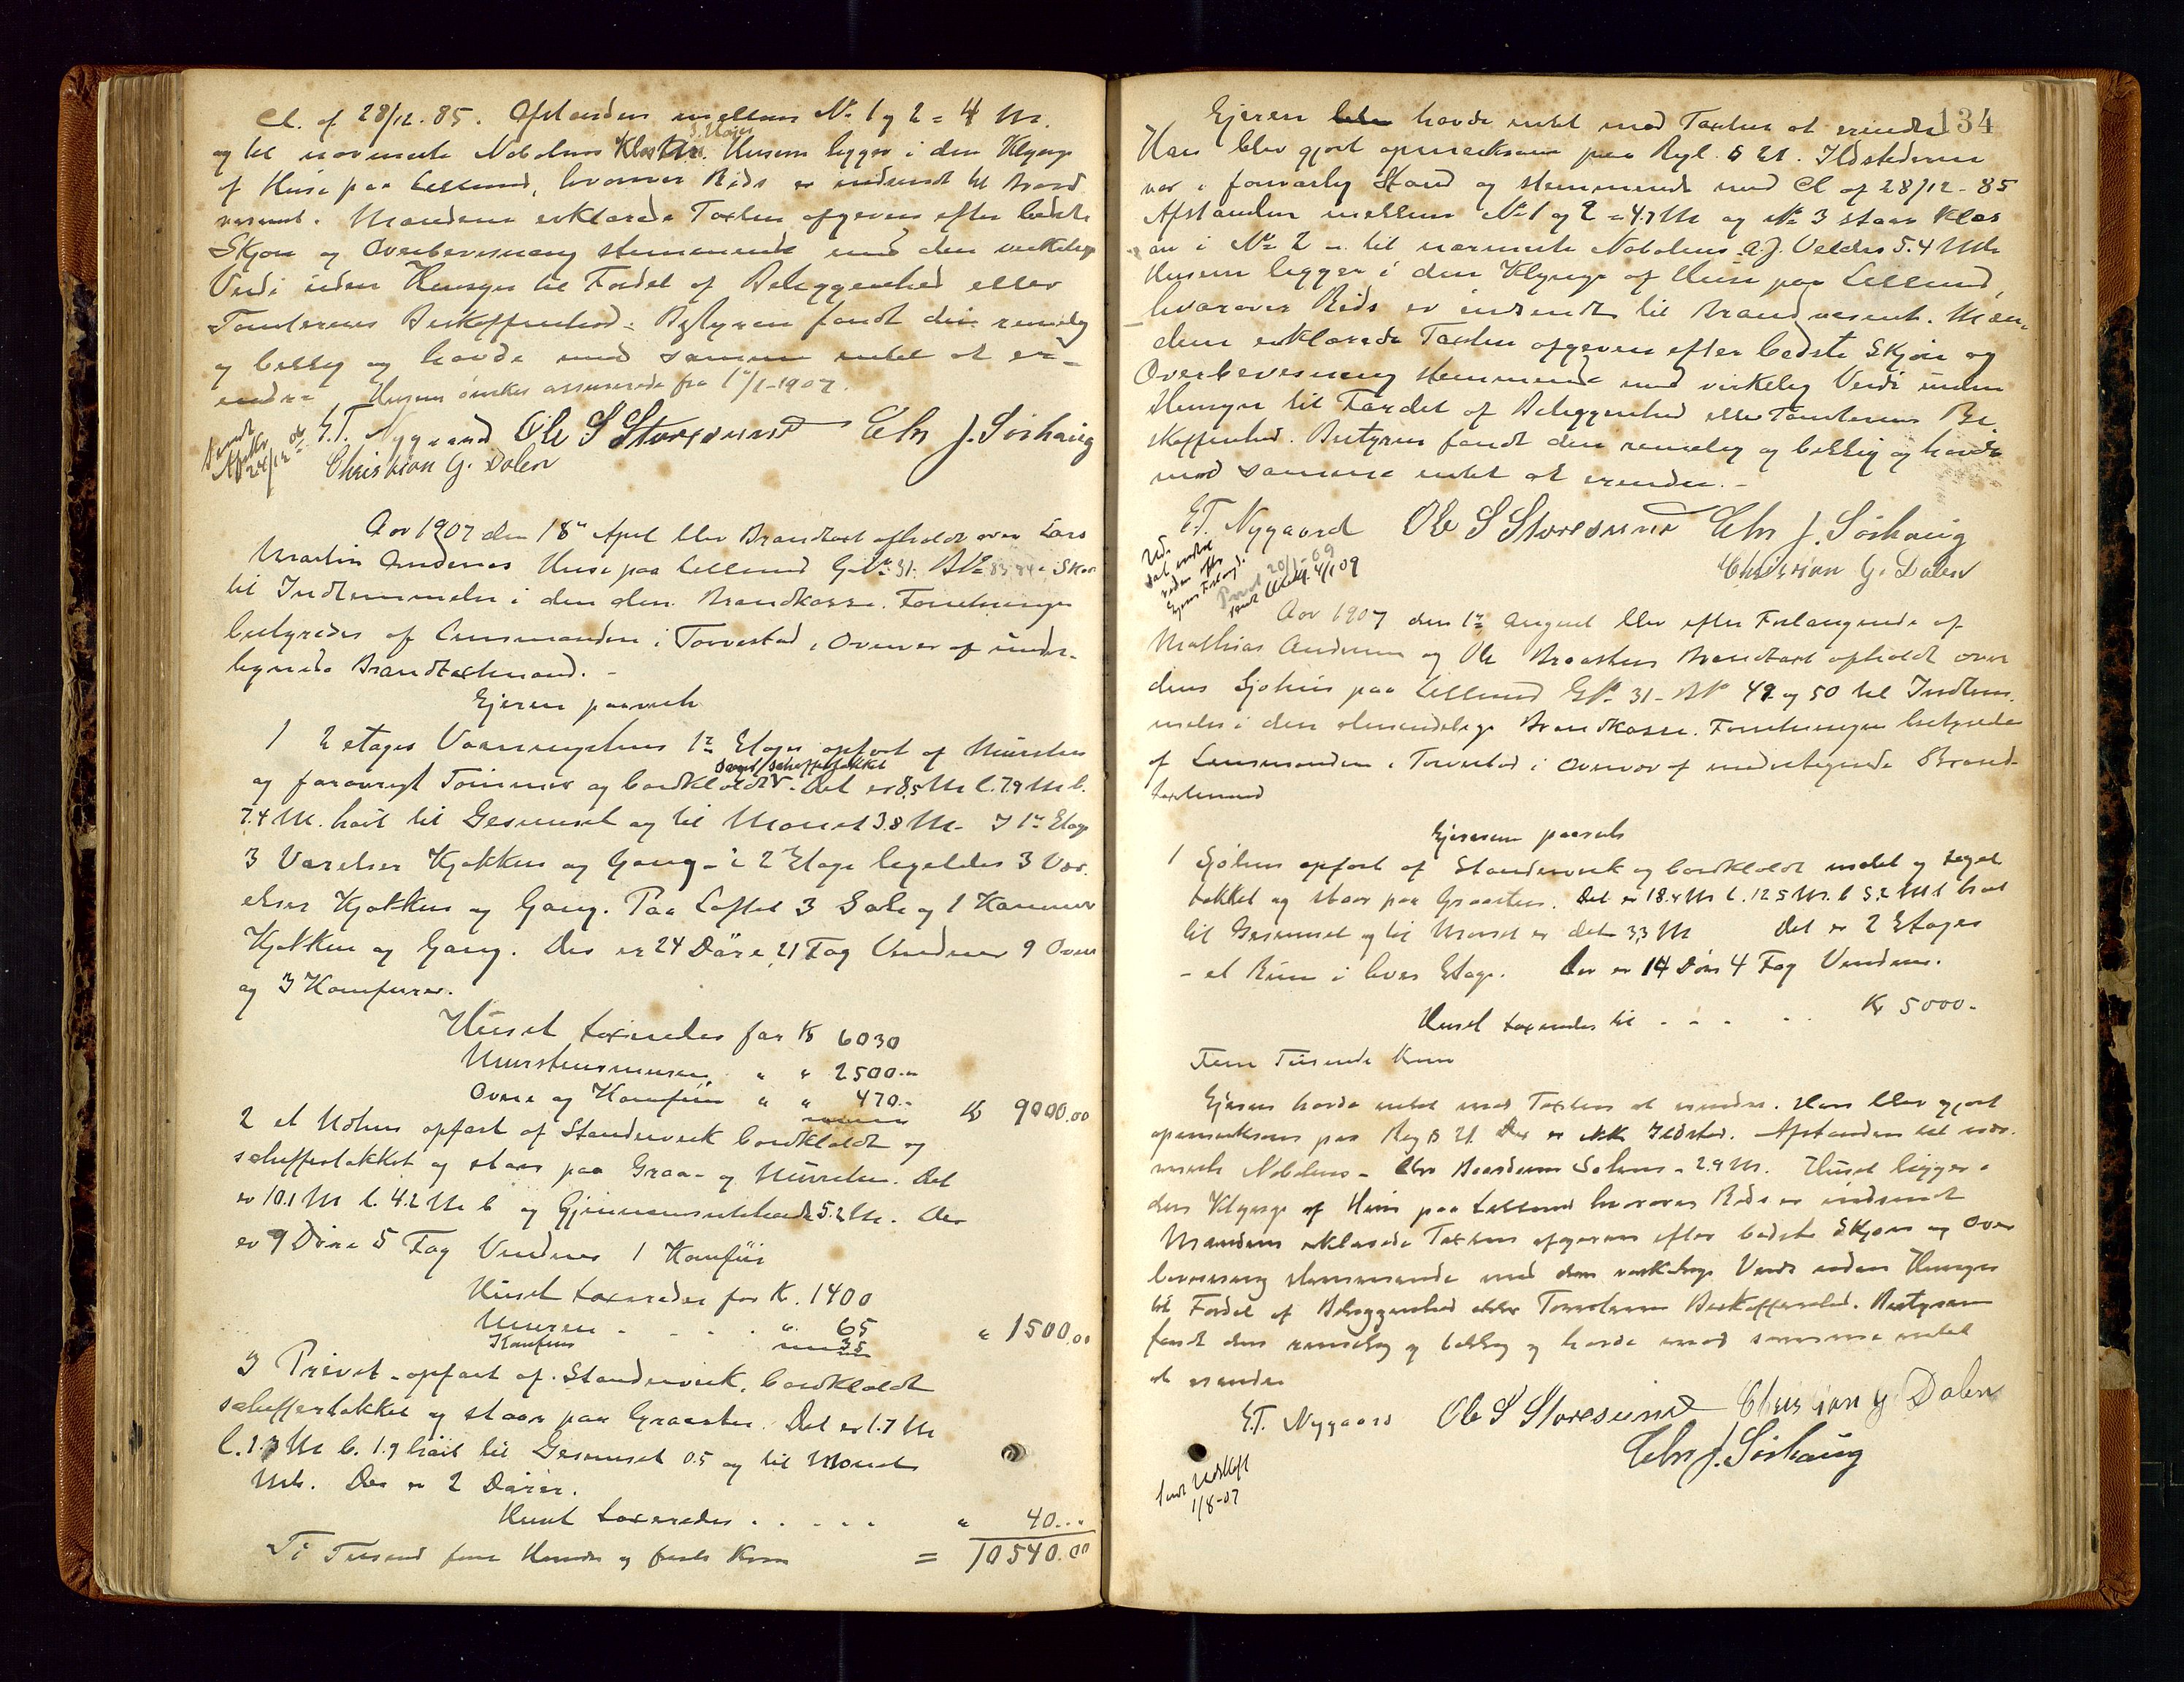 Cl. af 28/12. 85. Afstanden mellem No 1 og 2 = 4 M.
og til nærmeste Nabohus Klos Husene ligger i den Klynge
af Huse paa Lillesund, hvorover Rids er indsendt til Brand
væsenet. Mændene erklærede Taxten afgiven efter bedste
Skjøn og Overbevisning stemmende med den virkelige
Verdi uden Hensyn til Fordel af Beliggenhed eller
Tomternes Beskaffenhed. Bestyren fandt den rimelig
og billig og havde mod samme intet at er-
indre. Husene ønskes assurerede fra 1/1-1907.
E.T. Nygaard Ole S Storesund Chr J. Sörhaug
Christian G. Dalen
24/12
Aar 1907 den 18de April blev Brandtaxt afholdt over Lars
Martin Andenes Huse paa Lillesund GNo 31. BNo 83. 84 i Skaa
til Indlemmelse i den alm. Brandkasse. Forretningen
bestyredes af Lensmanden i Torvestad i Overvær af under-
tegnede Brandtaxtmænd. -
Ejeren paaviste
1 2 etages Vaaningshus 1ste Etage opført af Mursten
og forøvrigt Tømmer og bordklædt. Det er 8,5 M l. 7.9 M b.
7.4 M. høit til Gesimset og til Mønet 3.8 M. I 1ste Etage
3 Værelser Kjøkken og Gang - i 2 Etage ligeledes 3 Vær.
elser Kjøkken og Gang. Paa Loftet 3 Sale og 1 Kammer
Kjøkken og Gang. Der er 24 Døre, 21 Fag Vinduer 9 Ovne
og 3 Komfurer.
Huset taxeredes for Kr 6030
Murstensmuren " " 2500.-
Ovne og Komfur " " 470.- Kr 9000.00
2 et Udhus opført af Standerverk bordklædt og
schiffertækket og staar paa Graa- og Mursten. Det
er 10.1 M l. 4.2 M b og Gjennemsnitshøide 5.2 M. Der
er 9 Døre 5 Fag Vinduer 1 Komfur
Huset taxeredes for Kr. 1400
Muren - - - - " 65
Komfuren 35 " 1500.00
3 Privet - opført af Standerverk, bordklædt
schiffertækket og staar paa Graasten. Det er 1.7 M
l. 1.3 M b. 1.9 høit til Gesimset 0.5 og til Mønet
Mtr. Der er 2 Dører.
Huset taxeredes . . . . . " 40...
Ti Tusend fem Hundre og førti Kron = 10540.00
134
Ejeren havde intet mod Taxten at erindre
Han blev gjort opmerksom paa Regl. § 21. Ildstederne
var i forsvarlig Stand og stemmende med Cl af 28/12 - 85
Afstanden mellem No 1 og 2 = 4.7 M og No 3 staar klos
an i No 2 - til nærmeste Nabohus 5.4 Mtr
Husene ligger i den Klynge af Huse paa Lillesund,
hvorover Rids er indsendt til Brandvæsenet. Mæn-
dene erklærede Taxten afgiven efter bedste Skjøn og
Overbevisning stemmende med virkelig Verdi uden
Hensyn til Fordel af Beliggenhed eller Tomternes Be-
skaffenhed. Bestyren fandt den rimelig og billig og havde
mod samme intet at erindre. -
E.T. Nygaard Ole S Storesund Chr J. Sörhaug
Christian G. Dalen
20/1-09
4/1 09
Aar 1907 den 1ste August blev efter Forlangende af
Mathias Andersen og Ole Braasten Brandtaxt afholdt over
deres Sjøhus paa Lillesund GNo 31 - BNo 49 og 50 til Indlem-
melse i den almindelige Brandkasse. Forretningen bestyredes
af Lensmanden i Torvestad i Overvær af undertegnede Brand-
taxtmænd
Ejerene paaviste
1 Sjøhus opført af Standerverk og bordklædt malet og tegel
tækket og staar paa Graasten. Det er 18.4 M l. 12.5 M. b 5.2 M høit
til Gesimset og til Mønet er det 3,3 M Det er 2 Etages
- et Rum i hver Etage. Der er 14 Døre 4 Fag Vinduer.
Huset taxeredes til - - - - - Kr 5000.-
Fem Tusende Kron
Ejeren havde intet mod Taxten at erindre. Han blev gjort
opmerksom paa Reg § 21. Der er ikke Ildsted. Afstanden til nær-
meste Nabohus - - 2.9 M. Huset ligger i
den Klynge af Huse paa Lillesund hvorover Rids er indsendt
Mændene erklærede Taxten afgiven efter bedste Skjøn og Over
bevisning stemmende med den virkelige Verdi uden Hensyn
til Fordel af Beliggenhed eller Tomternes Beskaffenhed. Bestyren
fandt den rimelig og billig og havde mod samme intet
at erindre
E.T. Nygaard Ole S Storesund Christian G Dalen
Chr J. Sörhaug
Sendt Udskrift
1/8-07